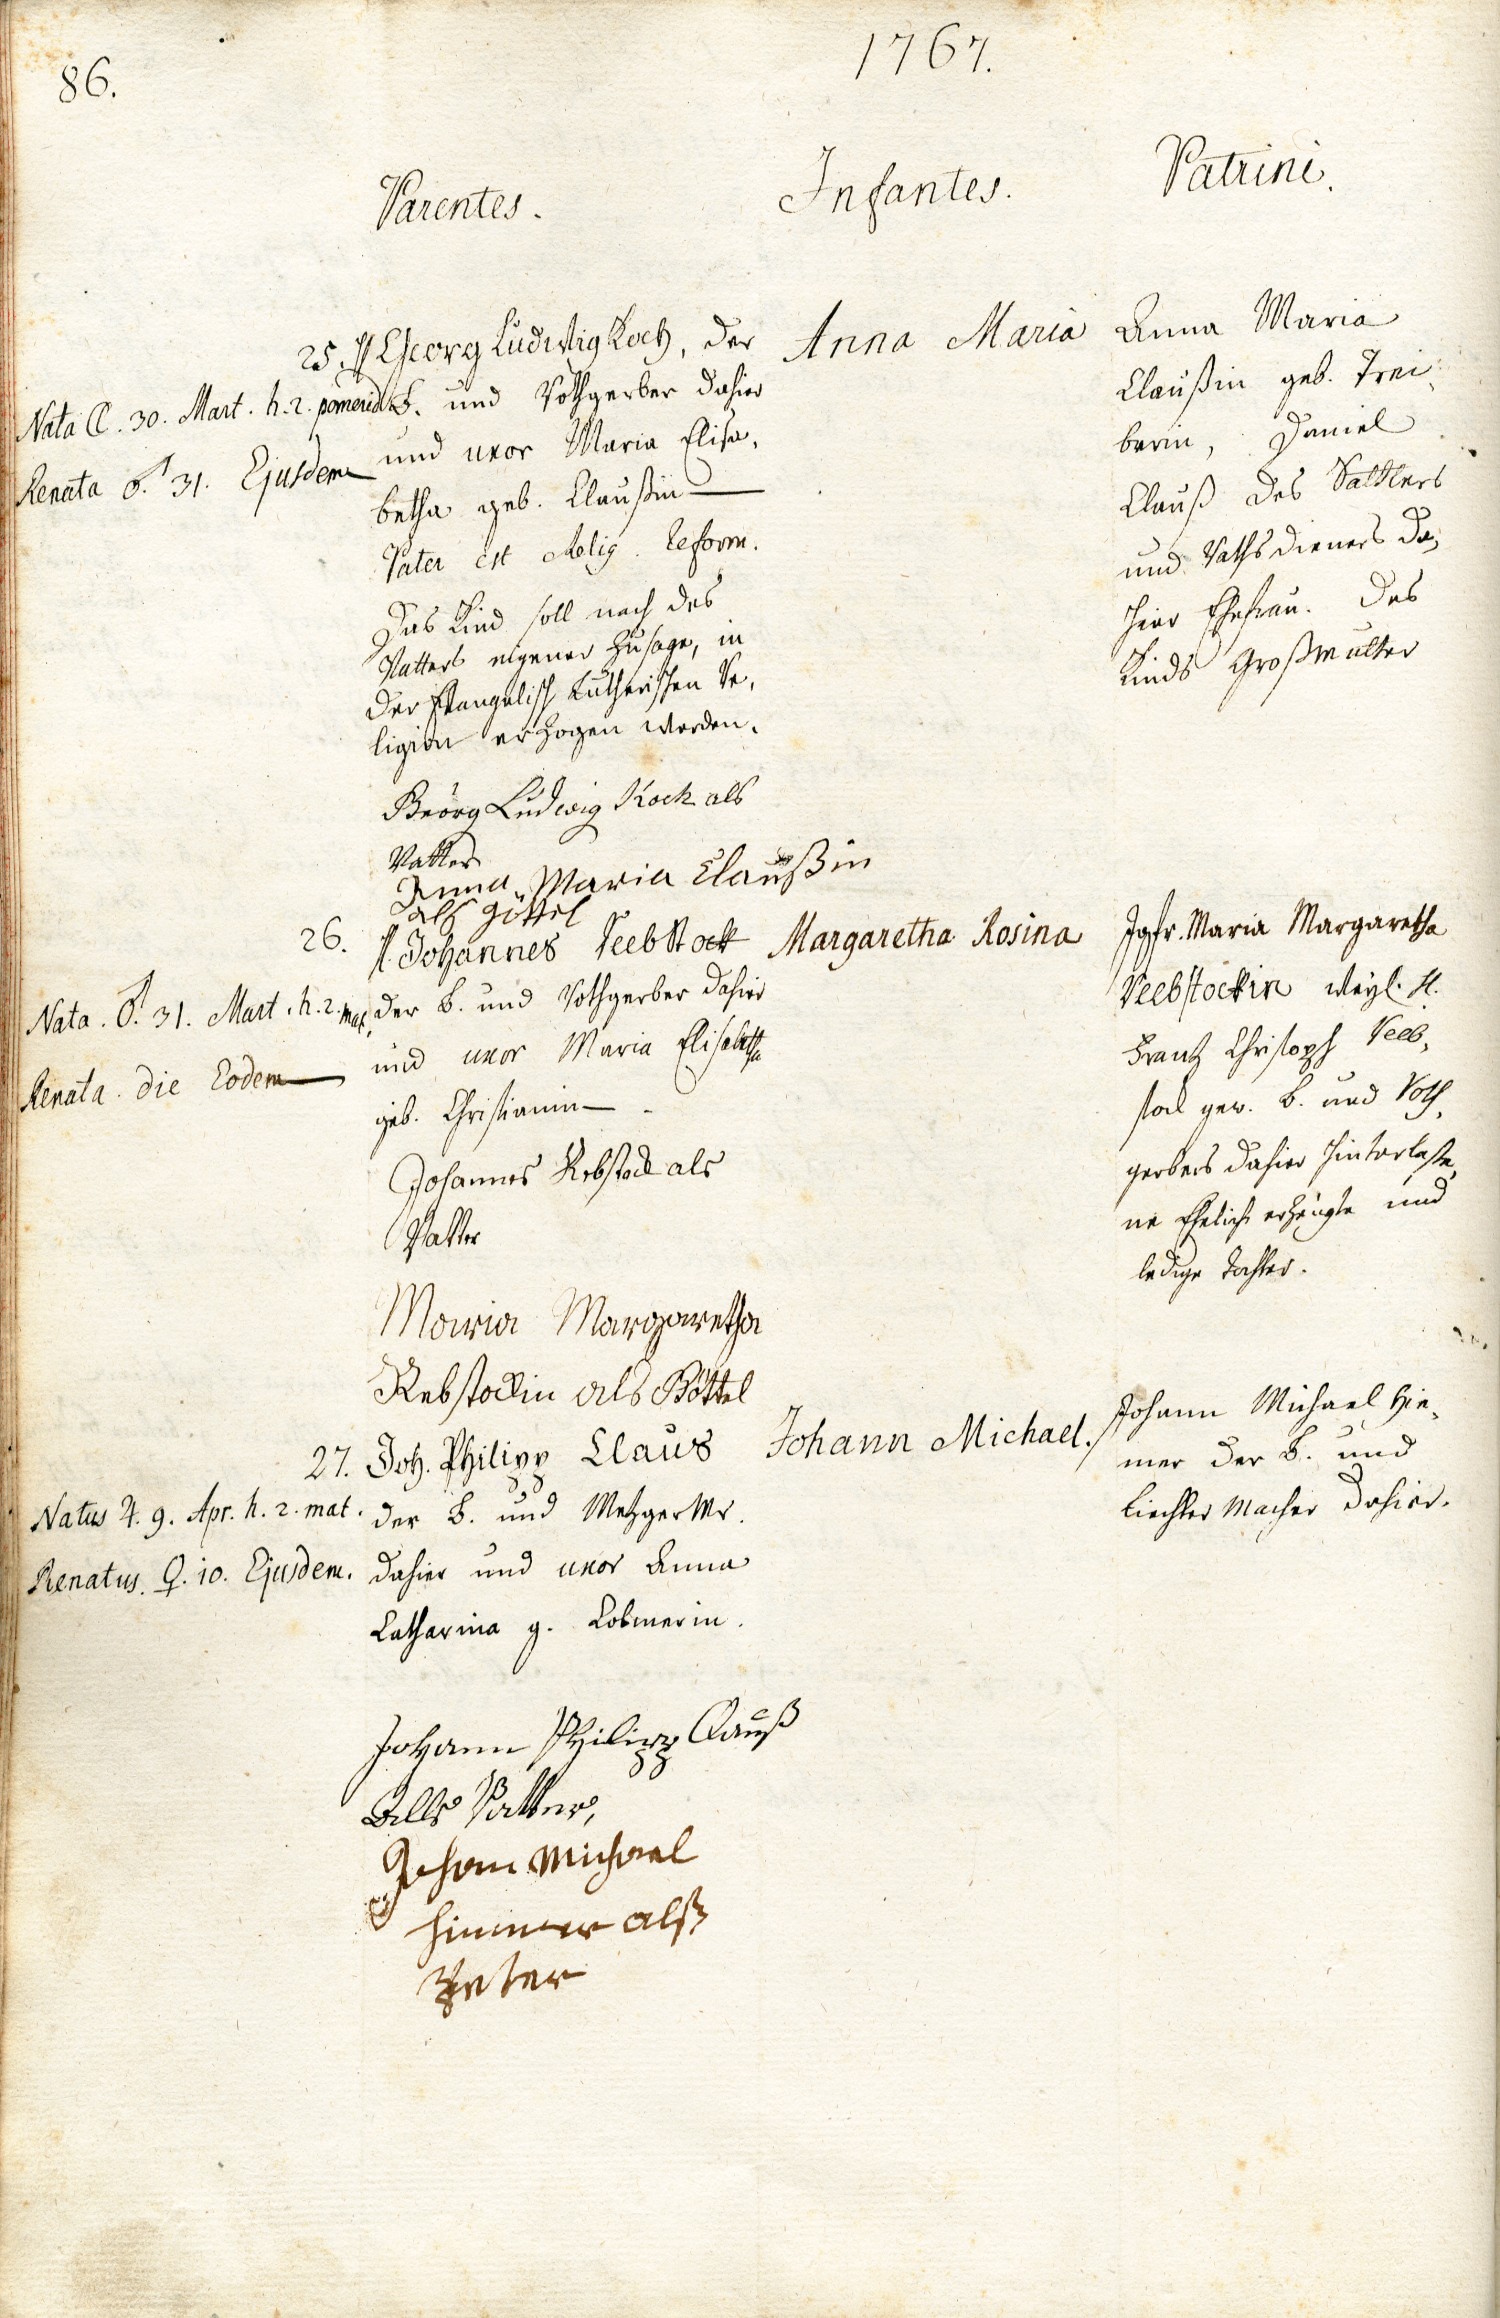 86.
1767.
Parentes.
Infantes.
Patrini.
25. H Georg Ludwig Koch, der
Nata ☾. 30. Mart. h. 2. pomerid.
B. und Rothgerber dahier
Renata ♂. 31. Ejusdem
und uxor Maria Elisa,
betha geb. Claußin
Pater est Relig. Reform.
Das Kind soll nach des
Vatters eigener Zusage, in
der Evangelisch Lutherischen Re,
ligion erzogen werden.
Geörg Ludwig Koch als
Vatter
Anna Maria Claußin
als Göttel
Anna Maria
Anna Maria
Claußin geb. Trei,
berin, Daniel
Clauß des Sattlers
und Rathsdieners da,
hier Ehefrau. Des
Kinds Großmutter
26. H. Johannes Reebstock
Nata. ♂. 31. Mart. h. 2. mat.
der B. und Rothgerber dahier
Renata. die Eodem
und uxor Maria Elisabetha
geb. Christianin
Johannes Rebstock als
Vatter
Maria Margaretha
Rebstockin als Göttel
Margaretha Rosina
Jgfr. Maria Margaretha
Reebstockin weyl. H.
Frantz Christoph Reeb,
stock gew. B. und Roth,
gerbers dahier hinterlaße,
ne Ehelich erzeugte und
ledige Tochter.
27. Joh. Philipp Claus
Natus ♃. 9. Apr. h. 2. mat.
der B. und Metzger Mr.
Renatus. ♀. 10. Ejusdem.
dahier und uxor Anna
Catharina g. Colmerin.
Johann Philipp Clauß
Alls Vatter,
Johan Michael
himmer alß
Petter
Johann Michael.
Johann Michael Hie,
mer der B. und
Liechter Macher dahier.